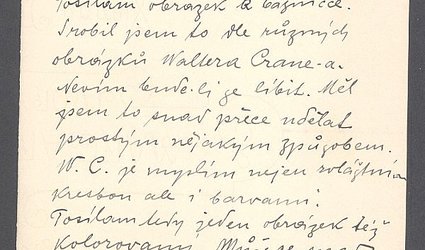 Posílám obrázek k básničce.
Srobil jsem to dle různých
obrázků Waltera Crane-a.
Nevím bude-li se líbit. Měl
jsem to snad přece udělat
prostým nějakým způsobem.
W. C. je myslím nejen zvláštním
kresbou ale i barvami.
Posílám tedy jeden obrázek též
kolorovaný.